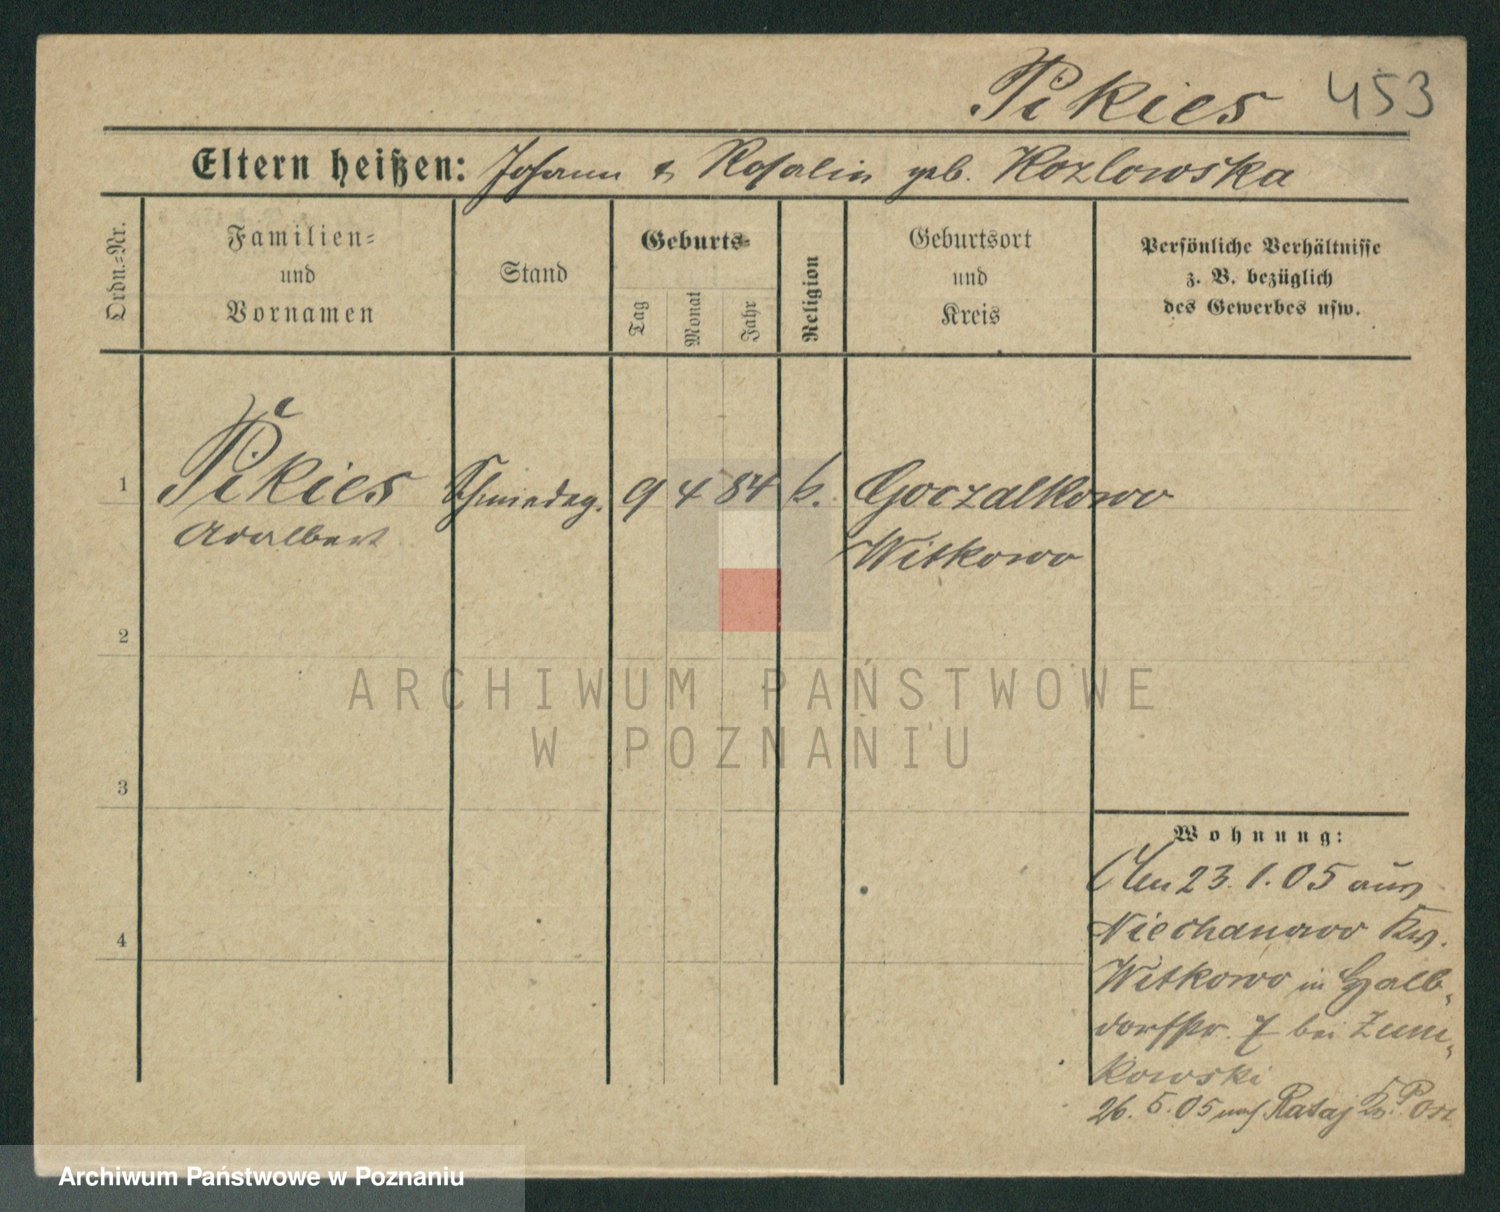 Pikies 453
Eltern heißen: Johann & Rosalia geb. Kozlowska
Ordn.-Nr.
Familien-
und
Vornamen
Stand
Geburts-
Tag
Monat
Jahr
Religion
Geburtsort
und
Kreis
Persönliche Verhältnisse
z. B. bezüglich
des Gewerbes usw.
1 Pikies Schmiedeg. 9 4 84 k. Goczalkowo
Adalbert
Witkowo
2
3
4
ARCHIWUM PAŃSTWOWE
W POZNANIU
Wohnung:
23.1.05 aus
Niechanowo Krs.
Witkowo in Halb-
dorfstr. 7 bei Zum-
kowski
26.5.05 nach Rataj Kr. P. Ost
Archiwum Państwowe w Poznaniu